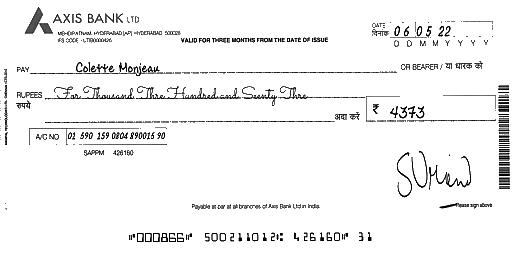 AXIS BANK LTD
MEHDIPATNAM, HYDERABAD [AP] - HYDERABAD 500028
IFS CODE - UTIB0000426
VALID FOR THREE MONTHS FROM THE DATE OF ISSUE
DATE
दिनांक 06 05 22
D D M M Y Y Y Y
PAY Colette Monjeau OR BEARER / या धारक को
RUPEES For Thousand Thre Hundred and Seenty Thre
रुपये अदा करें ₹ 4373
A/C NO 01 590 159 0804 890015 90
SAPPM 426160
Payable at par at all branches of Axis Bank Ltd in India.
Please sign above
"000866" 500211012: 426160" 31